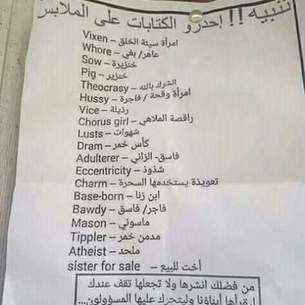 تنبيه !! إحذرو الكتابات على الملابس
Vixen – امرأة سيئة الخلق
Whore – عاهر/ بغي
Sow – خنزيرة
Pig – خنزير
Theocrasy – الشرك بالله
Hussy – امرأة وقحة / فاجرة
Vice – رذيلة
Chorus girl – راقصة الملاهي
Lusts – شهوات
Dram – كأس خمر
Adulterer – فاسق- الزاني
Eccentricity – شذوذ
Charm – تعويذة يستخدمها السحرة
Base-born – ابن زنا
Bawdy – فاجر/ فاسق
Mason – ماسوني
Tippler – مدمن خمر
Atheist – ملحد
sister for sale – أخت للبيع
من فضلك انشرها ولا تجعلها تقف عندك
أبناؤنا وليتحرك عليها المسؤولون...